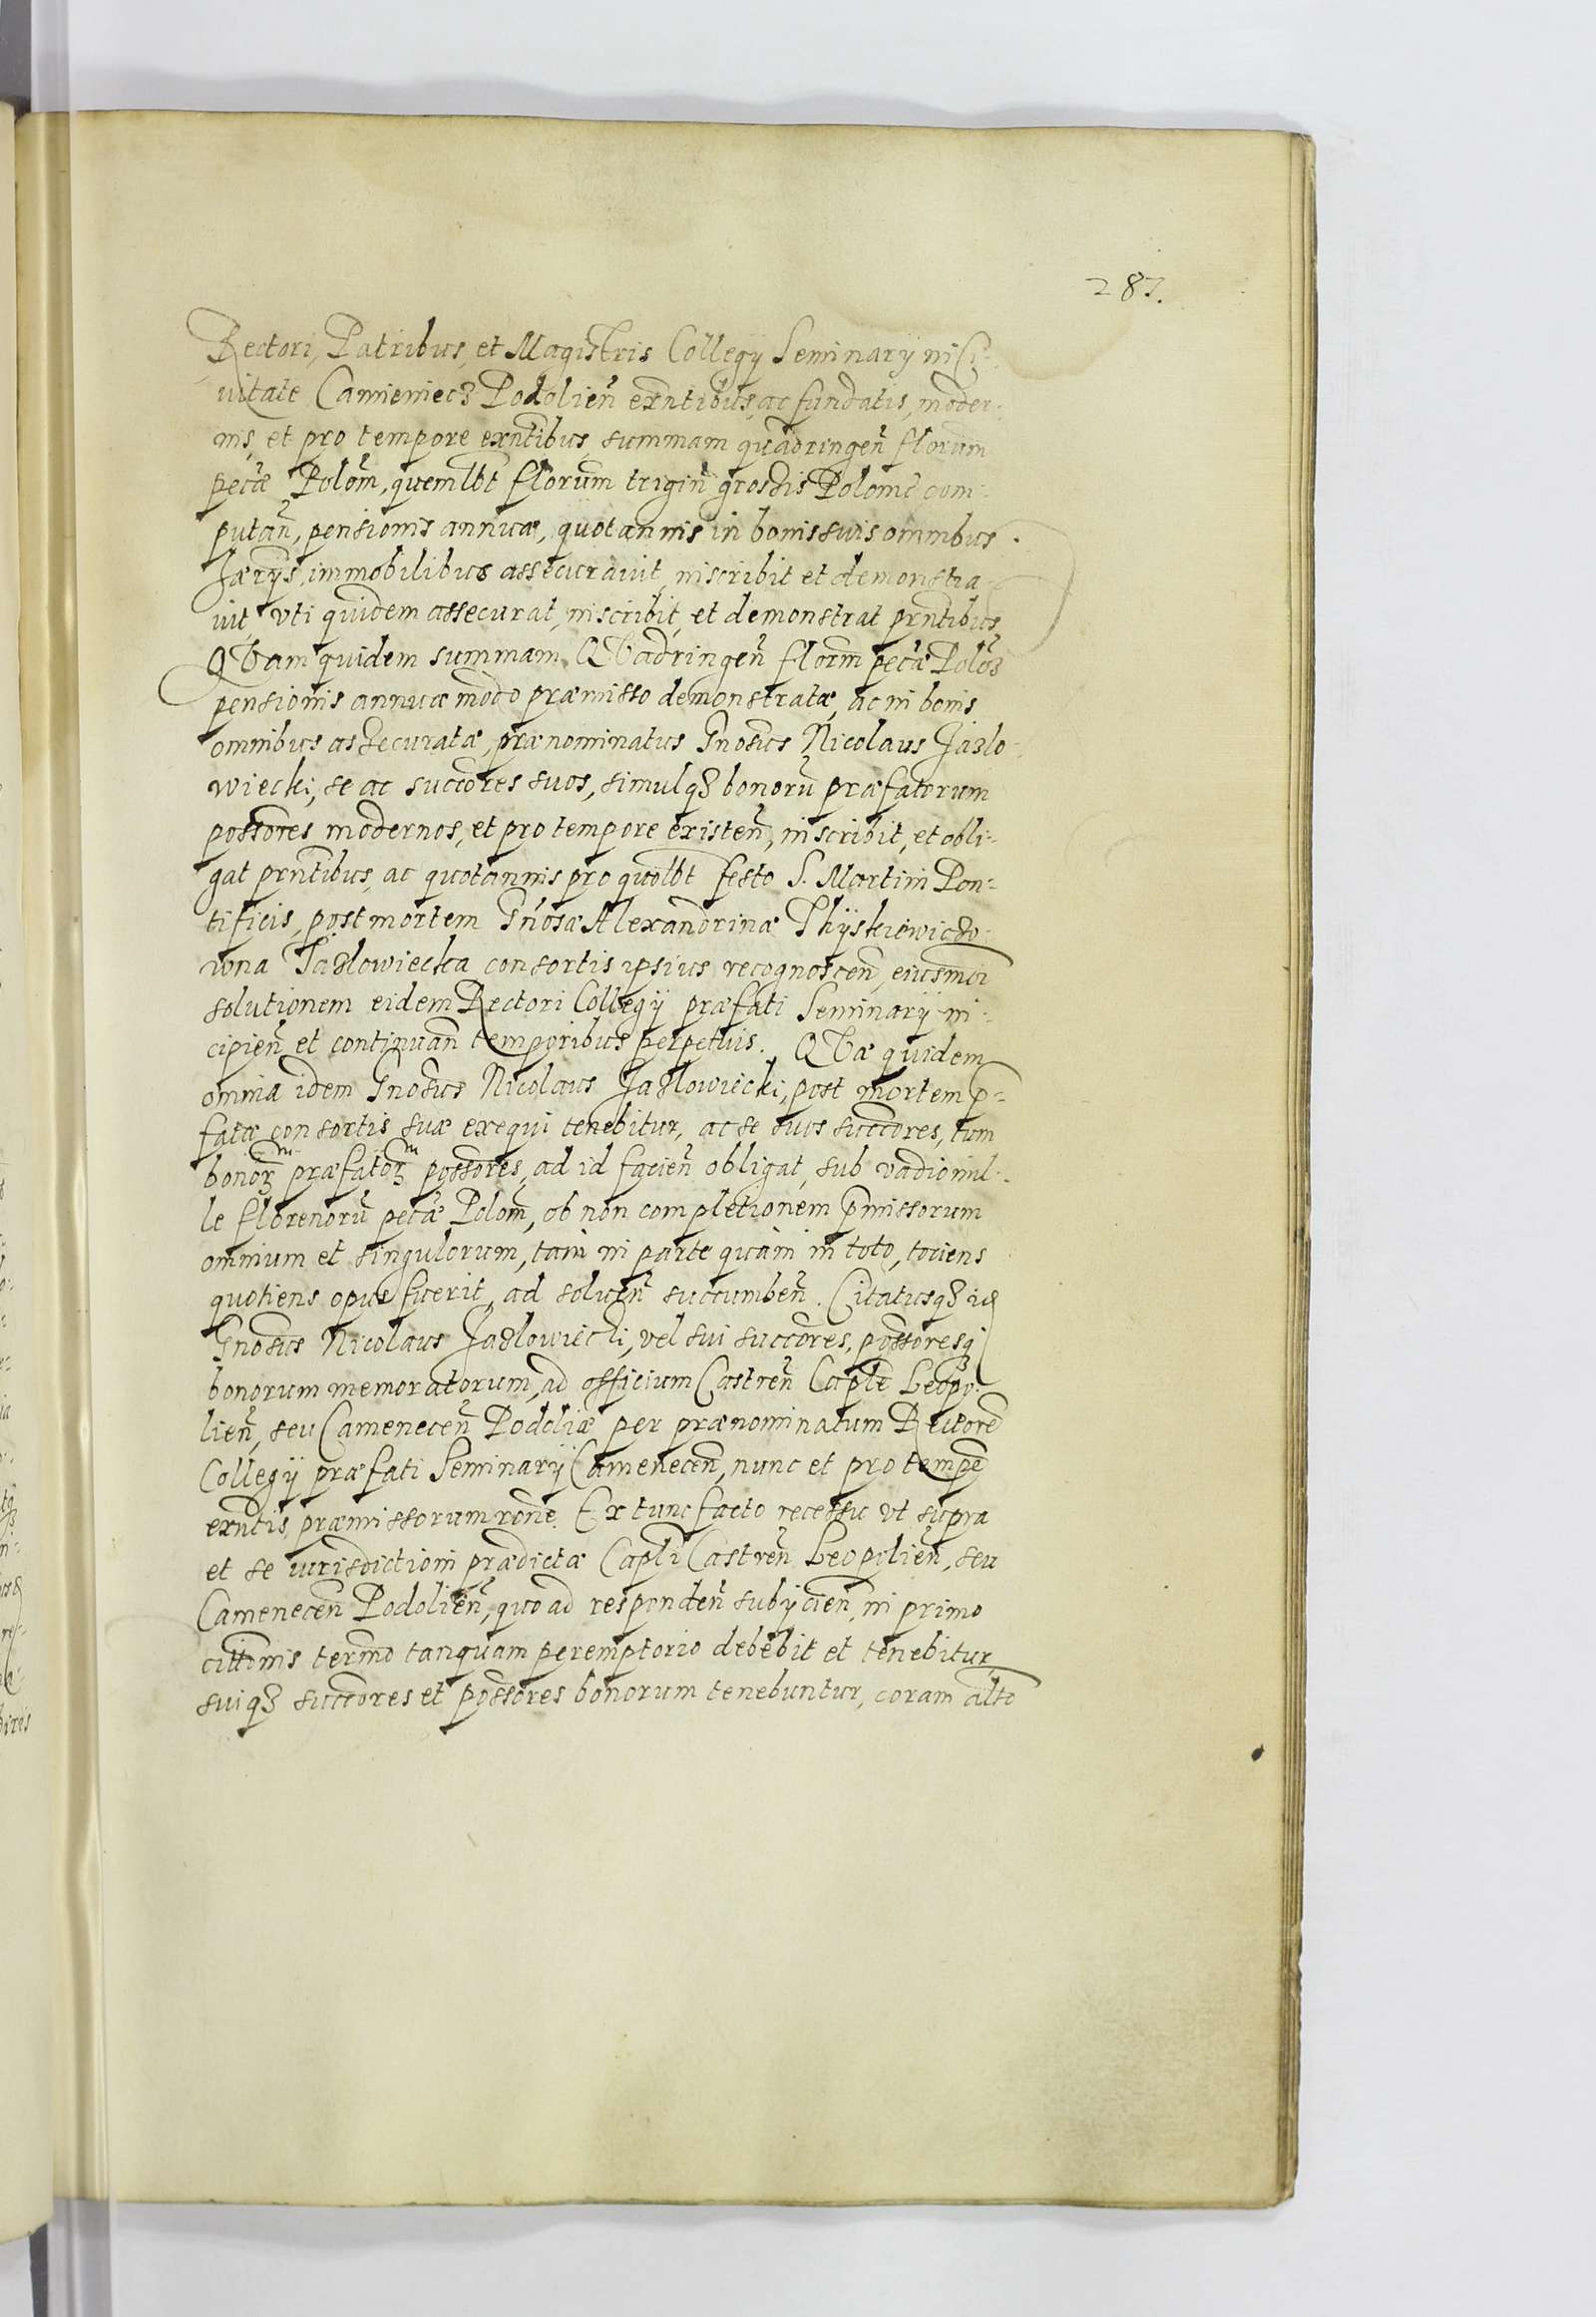 287.
Rectori, Patribus, et Magistris Collegÿ Seminarÿ in Ci-
uitate Camieniecz Podolień exńtibus, ac fundatis, moder-
nis, et pro tempore exńtibus, summam quadringeń florum
pecæ Polom, quemlbt florum trigiń grossis Polonic com-
putań, pensionis annuæ, quotannis in bonis suis omnibus
hærÿs, immobilibus assecurauit, inscribit et demonstra-
uit, vti quidem assecurat, inscribit, et demonstrat prńtibus
QVam quidem summam QVadringeń florm pecæ Polon
pensionis annuæ modo præmisso demonstratæ, ac in bonis
omnibus assecuratæ, prænominatus Gnosus Nicolaus Jazlo-
wiecki, se ac succores suos, simulqz bonorū præfatorum
possores modernos, et pro tempore existeń, inscribit, et obli-
gat prńtibus, ac quotannis pro quolbt festo S. Martini Pon-
tificis, post mortem Gnosæ Alexandrinæ Thÿskiewiczo-
wna Jazlowiecka consortis ipsius recognosceń, eiusmoi
solutionem eidem Rectori Collegÿ præfati Seminarÿ in-
cipień et continuań temporibus perpetuis. QVæ quidem
omnia idem Gnosus Nicolaus Jazlowiecki, post mortem p-
fatæ consortis suæ exequi tenebitur, ac se suos succores, tum
bonoꝝ præfatoꝝ possores, ad id facień obligat, sub vadio mil-
le florenorū pecæ Polom, ob non completionem pmissorum
omnium et singulorum, tam in parte quàm in toto, tociens
quotiens opus fuerit, ad solueń succumbeń. Citatusqz id
Gnosus Nicolaus Jazlowiecki, vel sui succores, possoresq
bonorum memoratorum, ad officium Castreń Caple Leopo-
lień, seu Cameneceń Podoliæ per prænominatum Rectore
Collegÿ præfati Seminarÿ Cameneceń, nunc et pro tempe
exńtis, præmissorum rone. Ex tunc facto recessu vt supra
et se iurisdictioni prædictæ Capli Castreń Leopolień, seu
Cameneceń Podolień, quo ad respondeń subÿcień, in primo
cittonis termo tanquam peremptorio debebit et tenebitur,
suiqz succores et possores bonorum tenebuntur, coram alto